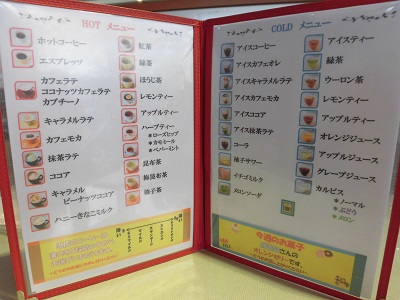 HOT メニュー
ホットコーヒー
エスプレッソ
カフェラテ
ココナッツカフェラテ
カプチーノ
キャラメルラテ
カフェモカ
抹茶ラテ
ココア
キャラメル
ピーナッツココア
ハニーきなこミルク
紅茶
緑茶
ほうじ茶
レモンティー
アップルティー
ハーブティー
*ローズヒップ
*カモミール
*ペパーミント
昆布茶
梅昆布茶
柚子茶
COLD メニュー
アイスコーヒー
アイスカフェオレ
アイスキャラメルラテ
アイスカフェモカ
アイスココア
アイス抹茶ラテ
コーラ
柚子サワー
イチゴミルク
メロンソーダ
アイスティー
緑茶
ウーロン茶
レモンティー
アップルティー
オレンジジュース
アップルジュース
グレープジュース
カルピス
*ノーマル
*ぶどう
*メロン
今週のお菓子
さんの
オレンジゼリーです。